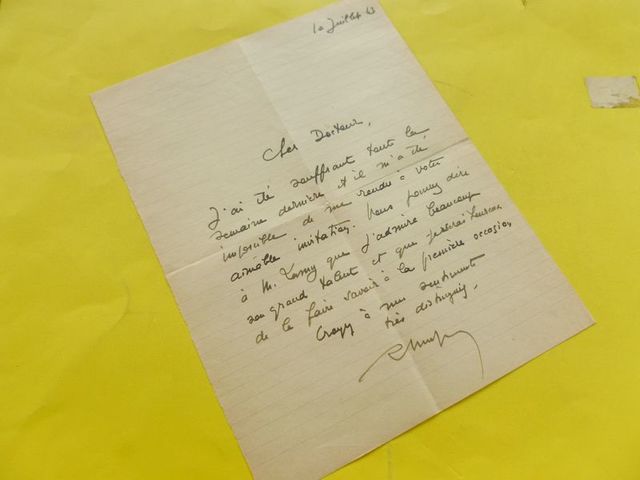 10 Juillet 63
Cher Docteur,
J'ai été souffrant toute la
semaine dernière et il m'a été
impossible de me rendre à votre
aimable invitation. Vous pouvez dire
à M. que j'admire beaucoup
son grand talent et que je serai heureux
de le faire savoir à la première occasion
Croyez à mes sentiments
très distingués.